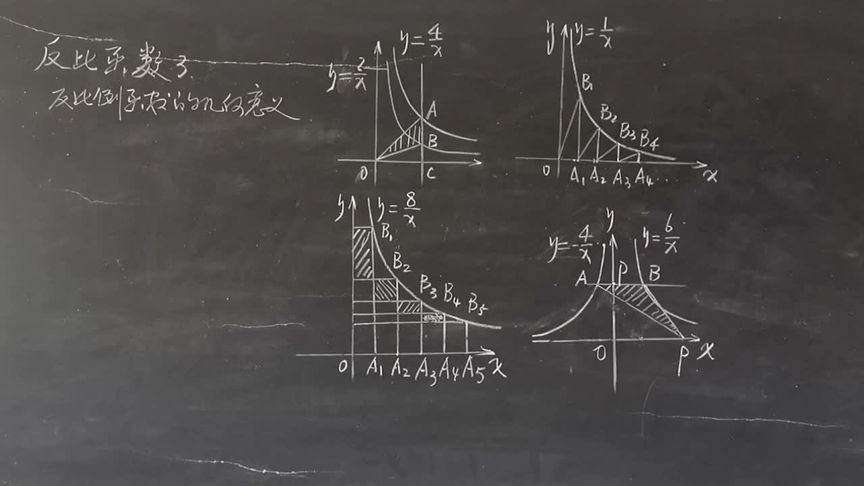 反比系数
反比例系数的几何意义
y=4/x
y=2/x
A
B
O C
y y=1/x
B₁
B₂
B₃ B₄
O A₁ A₂ A₃ A₄... x
y y=8/x
B₁
B₂
B₃ B₄ B₅
O A₁ A₂ A₃ A₄ A₅ x
y
y=-4/x y=6/x
A P B
O P x